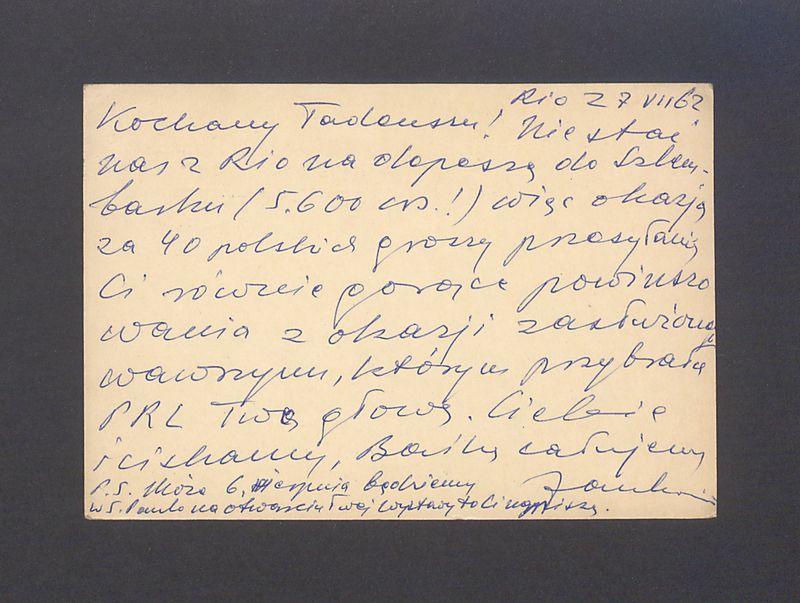 Rio 27 VII 62
Kochany Tadeuszu! Nie stać
nas z Rio na depeszę do Szlem-
barku (5.600 crs.!) więc okazją
za 40 polskich groszy przesyłamy
Ci równie gorące powinszo
wania z okazji zasłużonego
wawrzynu, którym przybrała
PRL Twą głowę. Ciebie
ściskamy, Baśkę całujemy
P.S. Może 6, sierpnia będziemy
w S. Paulo na otwarciu Twej wystawy to Ci napiszę.